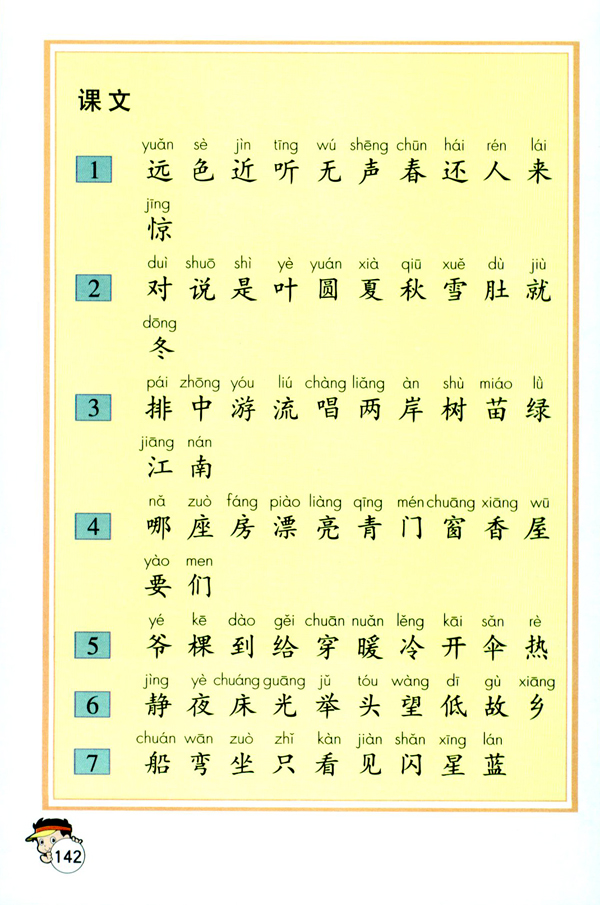 课文
yuǎn sè jìn tīng wú shēng chūn hái rén lái
1 远 色 近 听 无 声 春 还 人 来
jīng
惊
duì shuō shì yè yuán xià qiū xuě dù jiù
2 对 说 是 叶 圆 夏 秋 雪 肚 就
dōng
冬
pái zhōng yóu liú chàng liǎng àn shù miáo lǜ
3 排 中 游 流 唱 两 岸 树 苗 绿
jiāng nán
江 南
nǎ zuò fáng piào liàng qīng mén chuāng xiāng wū
4 哪 座 房 漂 亮 青 门 窗 香 屋
yào men
要 们
yé kē dào gěi chuān nuǎn lěng kāi sǎn rè
5 爷 棵 到 给 穿 暖 冷 开 伞 热
jìng yè chuáng guāng jǔ tóu wàng dī gù xiāng
6 静 夜 床 光 举 头 望 低 故 乡
chuán wān zuò zhǐ kàn jiàn shǎn xīng lán
7 船 弯 坐 只 看 见 闪 星 蓝
142